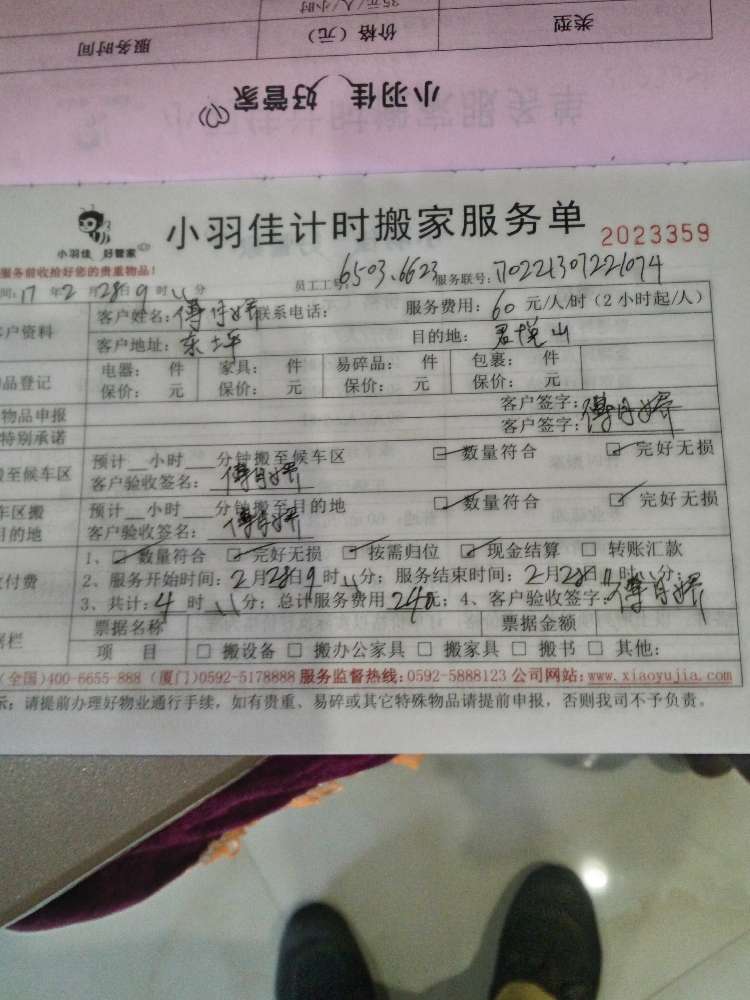 35元/人/小时
类型 价格（元） 服务时间
小羽佳 好管家
小羽佳 好管家
小羽佳计时搬家服务单 2023359
服务前收拾好您的贵重物品！
间：17年2月28日9时 分 员工工号：6503.6623 服务联号：
客户资料 客户姓名： 联系电话： 服务费用：60元/人/时（2小时起/人）
客户地址：东坪 目的地：君悦山
品登记 电器： 件 家具： 件 易碎品： 件 包裹： 件
保价： 元 保价： 元 保价： 元 保价： 元
物品申报 客户签字：
特别承诺 客户签字：
搬至候车区 预计__小时__分钟搬至候车区 ☑数量符合 ☑完好无损
客户验收签名：
车区搬 预计__小时__分钟搬至目的地 ☑数量符合 ☑完好无损
目的地 客户验收签名：
付费 1、☑数量符合 ☑完好无损 ☑按需归位 ☑现金结算 □转账汇款
2、服务开始时间：2月28日9时 分；服务结束时间：2月28日11时 分；
3、共计：4时 分；总计服务费用240元；4、客户验收签字：
票据名称 票据金额
据栏 项 目 □搬设备 □搬办公家具 □搬家具 □搬书 □其他：
（全国）400-6655-888（厦门）0592-5178888 服务监督热线：0592-5888123 公司网站：www.xiaoyujia.com
示：请提前办理好物业通行手续，如有贵重、易碎或其它特殊物品请提前申报，否则我司不予负责。